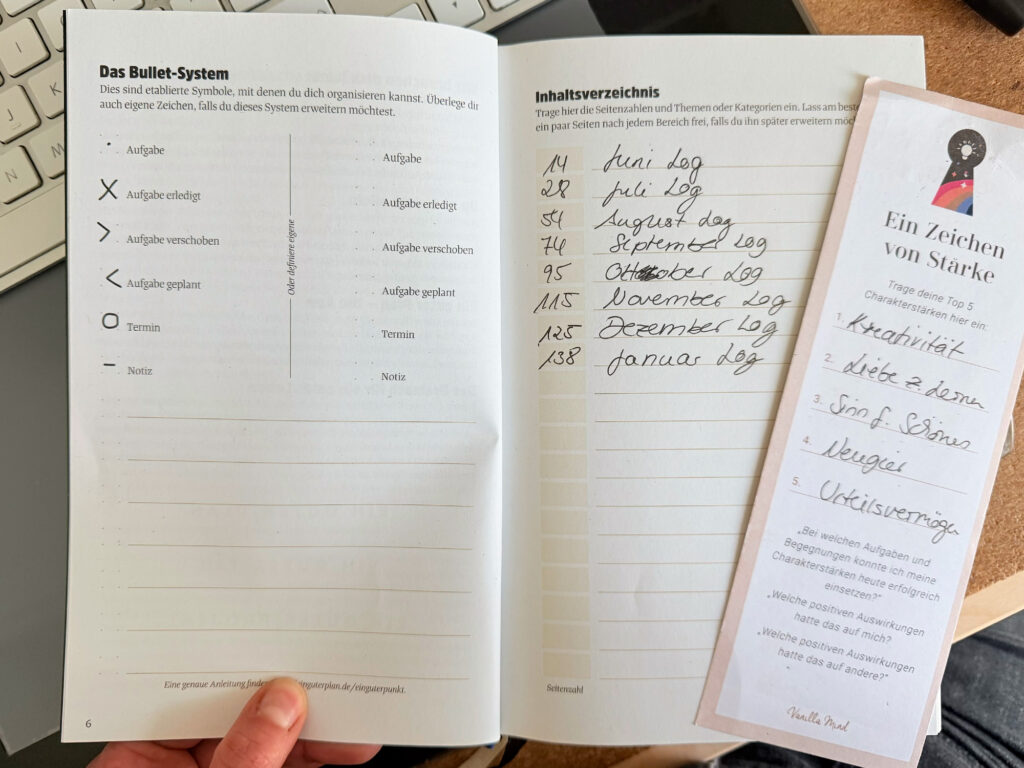 Das Bullet-System
Dies sind etablierte Symbole, mit denen du dich organisieren kannst. Überlege dir
auch eigene Zeichen, falls du dieses System erweitern möchtest.
Aufgabe
Aufgabe erledigt
Aufgabe verschoben
Aufgabe geplant
Termin
Notiz
Oder definiere eigene
Aufgabe
Aufgabe erledigt
Aufgabe verschoben
Aufgabe geplant
Termin
Notiz
Eine genaue Anleitung einguterplan.de/einguterpunkt.
6
Inhaltsverzeichnis
Trage hier die Seitenzahlen und Themen oder Kategorien ein. Lass am
ein paar Seiten nach jedem Bereich frei, falls du ihn später erweitern
14 Juni Log
28 Juli Log
54 August Log
74 September Log
95 Oktober Log
115 November Log
125 Dezember Log
138 Januar Log
Seitenzahl
Ein Zeichen
von Stärke
Trage deine Top 5
Charakterstärken hier ein:
1. Kreativität
2. Liebe z. Lernen
3. Sinn f. Schönes
4. Neugier
5. Urteilsvermögen
„Bei welchen Aufgaben und
Begegnungen konnte ich meine
Charakterstärken heute erfolgreich
einsetzen?"
„Welche positiven Auswirkungen
hatte das auf mich?
„Welche positiven Auswirkungen
hatte das auf andere?"
Vanilla Mind